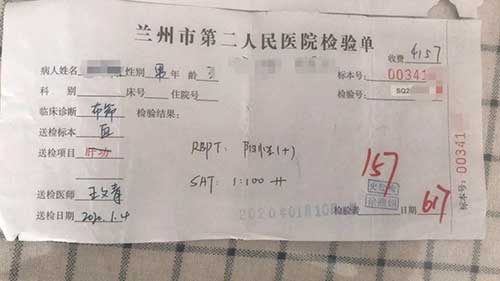 兰州市第二人民医院检验单
收费 4157
病人姓名 性别 男 年龄
标本号: 00341
科别 床号 住院号
检验号: SQ2
临床诊断 布鲁 检验结果:
送检标本 血
送检项目 肝功 RBPT: 阳性(+)
SAT: 1:100 ++
157
送检医师 王文青
2020年01月10日
送检日期 2020.1.4 检验者 617
标本号: 00341